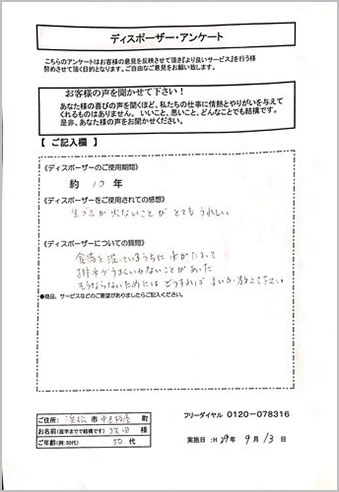 ディスポーザー・アンケート
こちらのアンケートはお客様の意見を反映させて頂き『より良いサービス』を行う様
努めさせて頂く目的となります。ご自由なご意見をお願い致します。
お客様の声を聞かせて下さい!
あなた様の喜びの声を聞くほど、私たちの仕事に情熱とやりがいを与えて
くれるものはありません。いいこと、悪いこと、どんなことでも結構です。
是非、あなた様の声をお聞かせください。
【 ご記入欄 】
《ディスポーザーのご使用期間》
約 10 年
《ディスポーザーをご使用されての感想》
生ゴミが出ないことが とても うれしい
《ディスポーザーについての質問》
食器を洗っているうちに 水がたまって
排水がうまくいかないことがあった
もうならないためには どうすれば よいか教えて下さい
●商品、サービスなどのご要望がありましたらご記入ください。
ご住所: 浜松 市 町
お名前(苗字までで結構です) 様
ご年齢(例:50代) 50 代
フリーダイヤル 0120-078316
実施日:H 29年 9月 13日